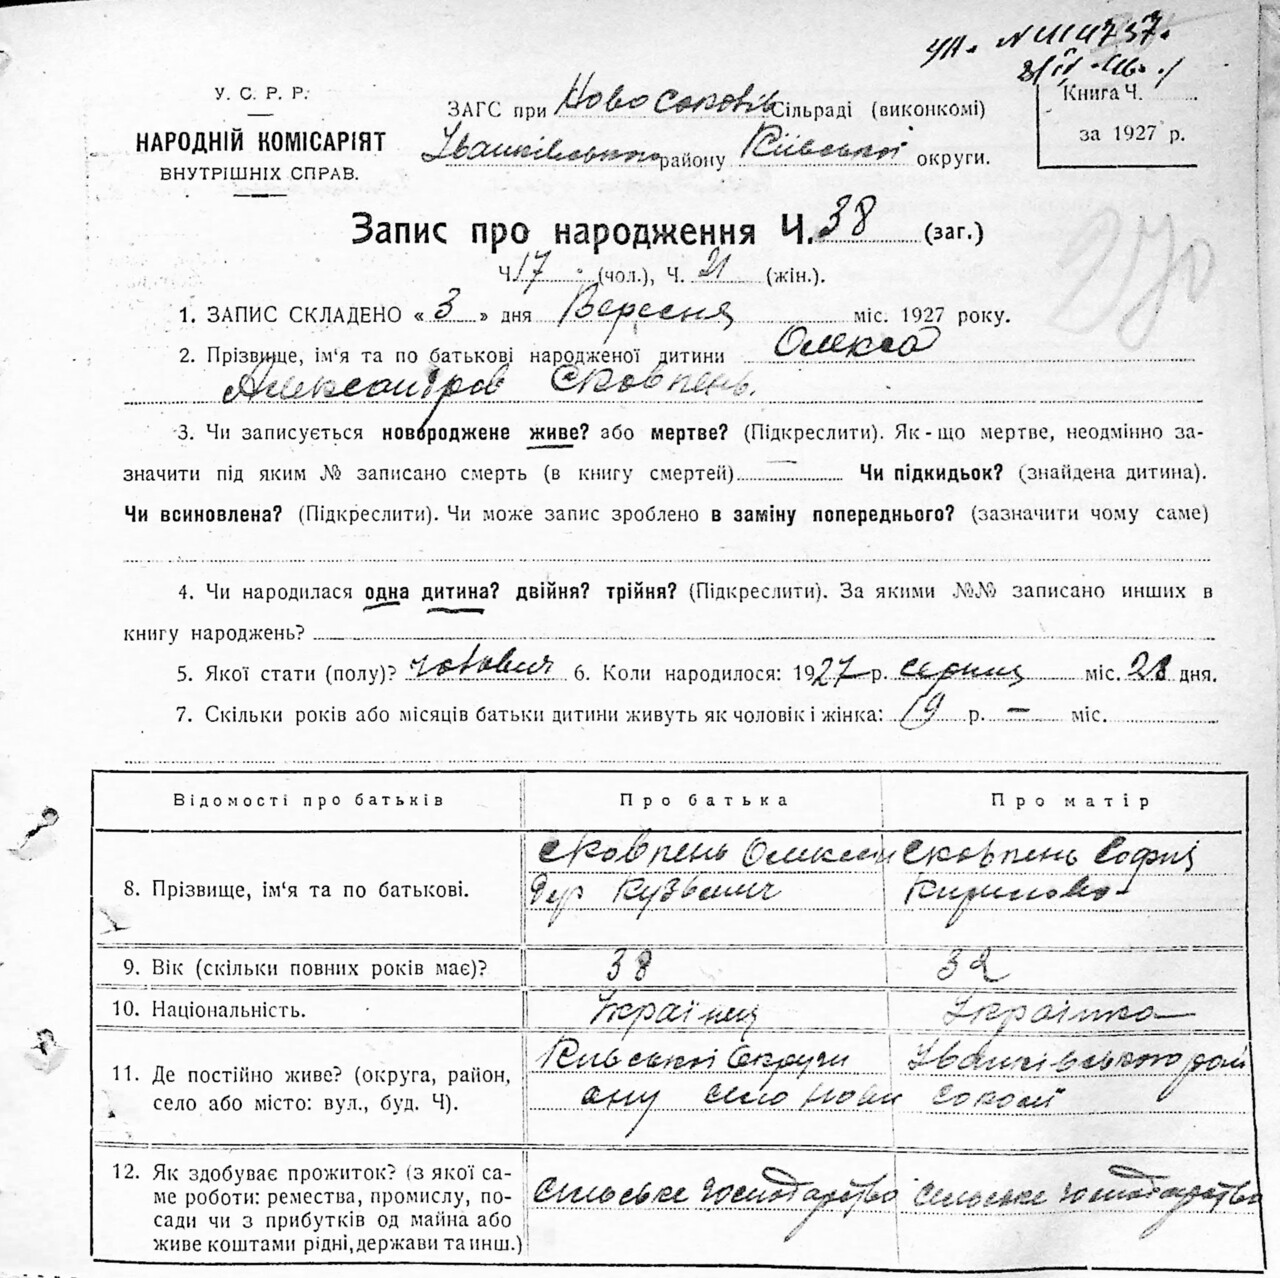 У. С. Р. Р.
НАРОДНІЙ КОМІСАРІЯТ
ВНУТРІШНІХ СПРАВ.
ЗАГС при Новосоколів Сільраді (виконкомі)
Іванківського району Київської округи.
Книга Ч.
за 1927 р.
Запис про народження Ч. 38 (заг.)
Ч. 17 (чол.), Ч. 21 (жін.).
270
1. ЗАПИС СКЛАДЕНО « 3 » дня Вересня міс. 1927 року.
2. Прізвище, ім'я та по батькові народженої дитини Олекса
Александров Сковпень.
3. Чи записується новороджене живе? або мертве? (Підкреслити). Як-що мертве, неодмінно за-
значити під яким № записано смерть (в книгу смертей) — Чи підкидьок? (знайдена дитина).
Чи всиновлена? (Підкреслити). Чи може запис зроблено в заміну попереднього? (зазначити чому саме)
4. Чи народилася одна дитина? двійня? трійня? (Підкреслити). За якими №№ записано инших в
книгу народжень?
5. Якої стати (полу)? чоловіч 6. Коли народилося: 1927 р. серпня міс. 28 дня.
7. Скільки років або місяців батьки дитини живуть як чоловік і жінка: 19 р. — міс.
Відомості про батьків Про батька Про матір
8. Прізвище, ім'я та по батькові. Сковпень Олексан Сковпень Софія
дур Кузьмич Кирилова
9. Вік (скільки повних років має)? 38 32
10. Національність. Українець Українка
11. Де постійно живе? (округа, район, Київської Округи Іванківського рай
село або місто: вул., буд. Ч). ону село Нови Соколи
12. Як здобуває прожиток? (з якої са-
ме роботи: ремества, промислу, по- Сільське господарство Сельське господарство
сади чи з прибутків од майна або
живе коштами рідні, держави та инш.)